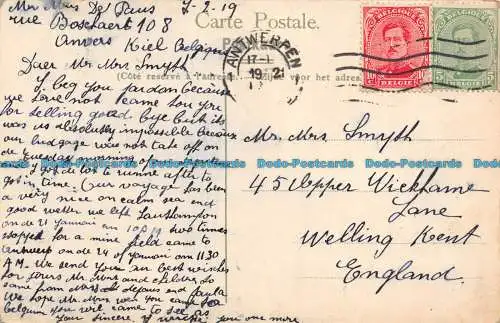 Mr. Mrs De Puis 7-2-19
rue Boschaert 108
Anvers Kiel Belgique
Carte Postale.
POSTKAART
(Côté réservé à l'adresse.) zijde voor het adres.
ANTWERPEN
17-1
19 2
BELGIQUE
10
BELGIË
BELGIQUE
5
BELGIË
Dear Mr Mrs Smyth
I beg you pardon because
we have not came to you
for telling good bye but it
was us absolutely impossible because
our luggage was not take off on
de Tuesday morning
I got de lot to runine after to
got in time. Our voyage has been
a very nice on calm sea and
good wetter we left Southampton
on de 21 January on 10 two times
stopped for a mine field came to
Antwerp on de 24 of January am 11.30
AM. We send you our best wishes
for yours Mr and
same from Mrs
We hope Mr Mrs wen you came to
Belgium you will came to see us
Your Sincere you one more
Mr. Mrs. Smyth
45 Upper Wickhame
Lane
Welling Kent
England.
Dodo-Postcards Dodo-Postcards Dodo-Postcards Dodo-Postcards